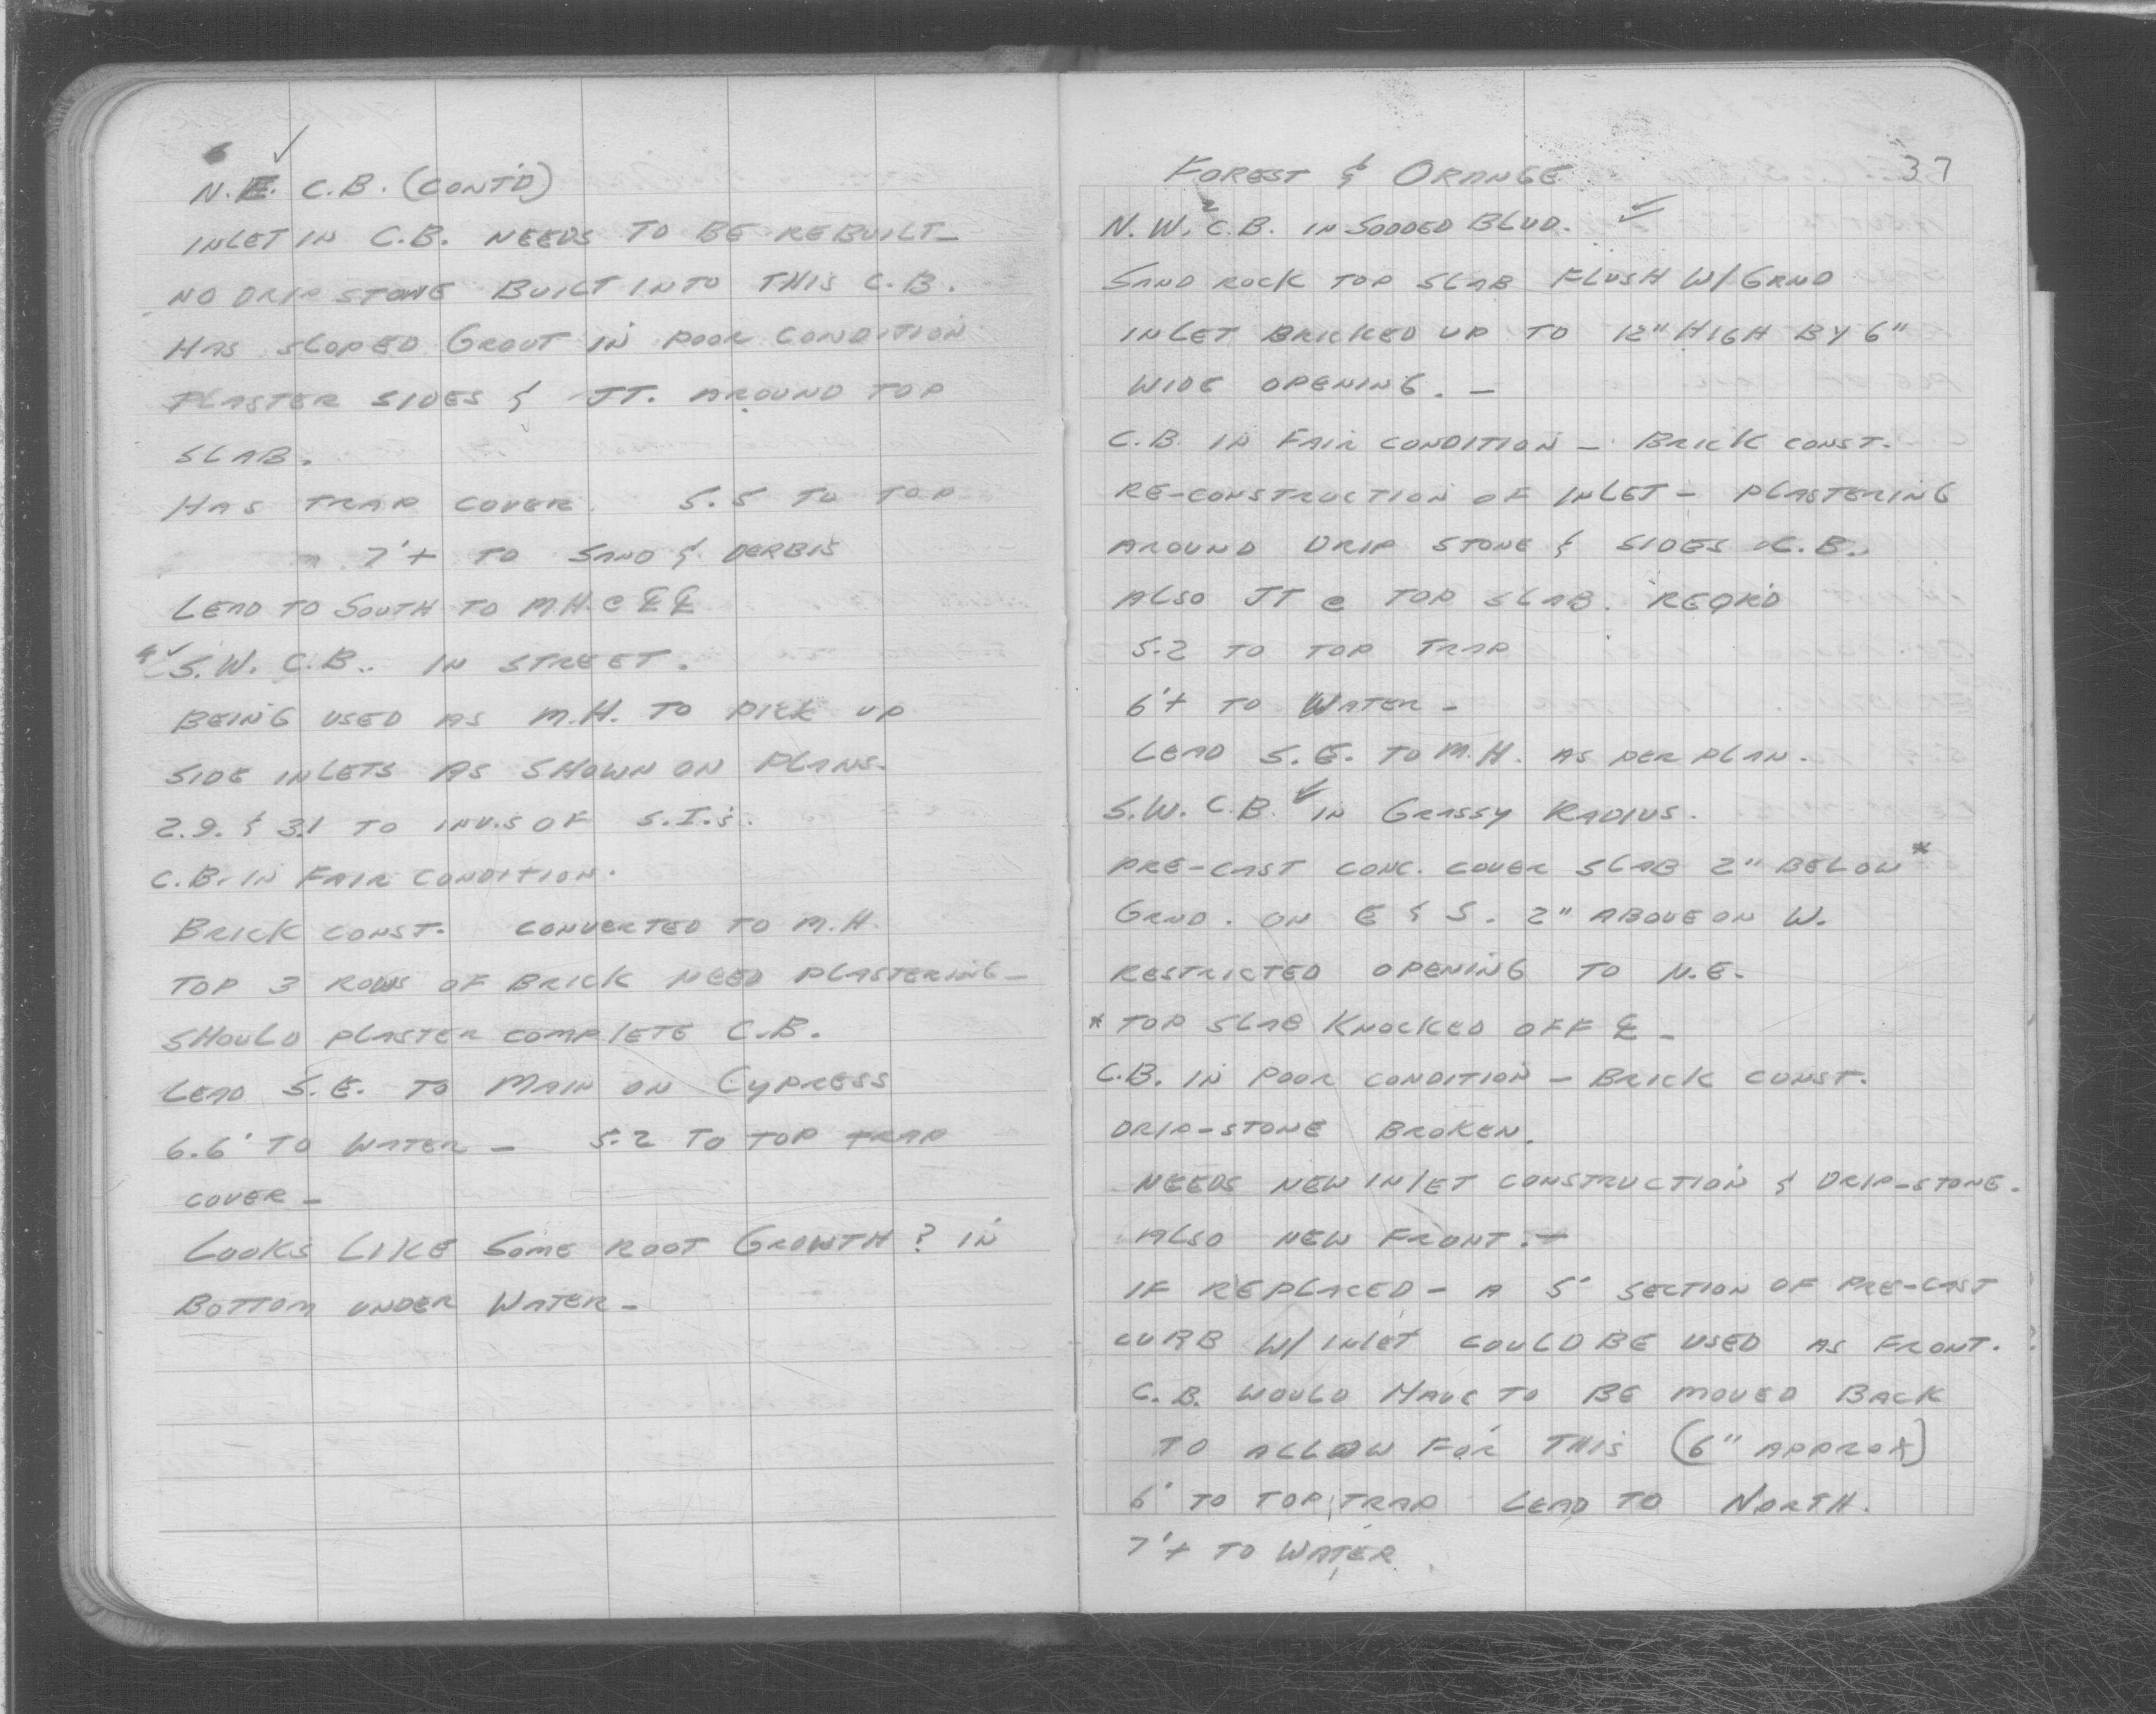 6 ✓
N.E. C.B. (CONT'D)
INLET IN C.B. NEEDS TO BE REBUILT –
NO DRIP STONE BUILT INTO THIS C.B.
HAS SLOPED GROUT IN POOR CONDITION
PLASTER SIDES & JT. AROUND TOP
SLAB.
HAS TRAP COVER. 5.5 TO TOP
7'+ TO SAND & DERBIS
LEAD TO SOUTH TO M.H. @ ℄ ℄
4 ✓ S.W. C.B. IN STREET.
BEING USED AS M.H. TO PICK UP
SIDE INLETS AS SHOWN ON PLANS.
2.9. & 3.1 TO INV.S OF S.I.'s.
C.B. IN FAIR CONDITION.
BRICK CONST. CONVERTED TO M.H.
TOP 3 ROWS OF BRICK NEED PLASTERING –
SHOULD PLASTER COMPLETE C.B.
LEAD S.E. TO MAIN ON CYPRESS
6.6' TO WATER – 5.2 TO TOP TRAP
COVER –
LOOKS LIKE SOME ROOT GROWTH ? IN
BOTTOM UNDER WATER –
FOREST & ORANGE 37
N.W. 2 C.B. IN SODDED BLVD. ✓
SAND ROCK TOP SLAB FLUSH W/ GRND
INLET BRICKED UP TO 12" HIGH BY 6"
WIDE OPENING. –
C.B. IN FAIR CONDITION – BRICK CONST.
RE-CONSTRUCTION OF INLET – PLASTERING
AROUND DRIP STONE & SIDES C.B.
ALSO JT @ TOP SLAB. REQR'D
5.2 TO TOP TRAP
6'+ TO WATER –
LEAD S.E. TO M.H. AS PER PLAN.
S.W. C.B. ✓ IN GRASSY RADIUS.
PRE-CAST CONC. COVER SLAB 2" BELOW *
GRND. ON E & S. 2" ABOVE ON W.
RESTRICTED OPENING TO N.E.
* TOP SLAB KNOCKED OFF ℄ –
C.B. IN POOR CONDITION – BRICK CONST.
DRIP-STONE BROKEN.
NEEDS NEW INLET CONSTRUCTION & DRIP-STONE.
ALSO NEW FRONT. –
IF REPLACED – A 5' SECTION OF PRE-CAST
CURB W/ INLET COULD BE USED AS FRONT.
C.B. WOULD HAVE TO BE MOVED BACK
TO ALLOW FOR THIS (6" APPROX)
6' TO TOP TRAP LEAD TO NORTH.
7'+ TO WATER